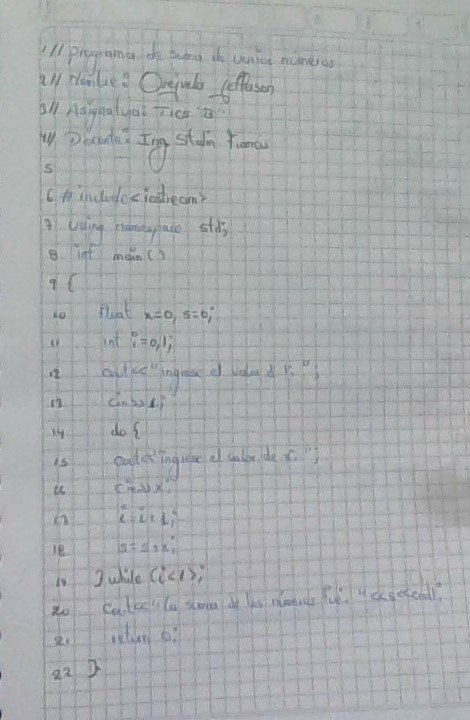 1// programa de suma de varios números
2// Nombre: Orejuela Jefferson
3// Asignatura: Tics "B"
4// Docente: Ing Stalin Francis
5
6 #include<iostream>
7 using namespace std;
8 int main()
9 {
10 float x=0, s=0;
11 int i=0,l;
12 cout<<"ingrese el valor d l: ";
13 cin>>l;
14 do {
15 cout<<"ingrese el valor de x: ";
16 cin>>x;
17 i=i+1;
18 s=s+x;
19 } while (i<l);
20 cout<<"la suma de los números fue: "<<s<<endl;
21 return 0;
22 }